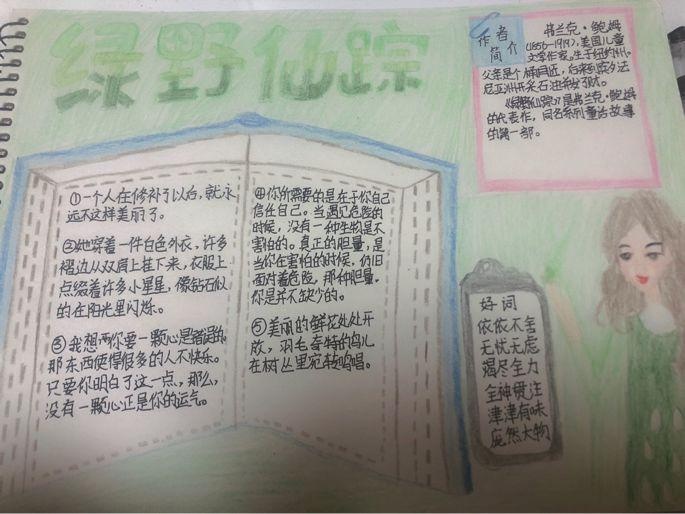 绿野仙踪
作者
简介
弗兰克·鲍姆
(1856-1919),美国儿童
文学作家。生于纽约州。
父亲是个桶匠,后来到宾夕法
尼亚州开采石油
《绿野仙踪》是弗兰克·鲍姆
的代表作,同名系列童话故事
的第一部。
①一个人在修补了以后,就永
远不这样美丽了。
②她穿着一件白色外衣,许多
褶边从双肩上挂下来,衣服上
点缀着许多小星星,像钻石似
的在阳光里闪烁。
③我想你要一颗心是错误的。
那东西使得很多的人不快乐。
只要你明白了这一点,那么,
没有一颗心正是你的运气。
④你所需要的是在于你自己
信任自己。当遇见危险的
时候,没有一种生物是不
害怕的。真正的胆量,是
当你在害怕的时候,仍旧
面对着危险,那种胆量,
你是并不缺少的。
⑤美丽的鲜花处处开
放,羽毛奇特的鸟儿
在树丛里宛转鸣唱。
好词
依依不舍
无忧无虑
竭尽全力
全神贯注
津津有味
庞然大物